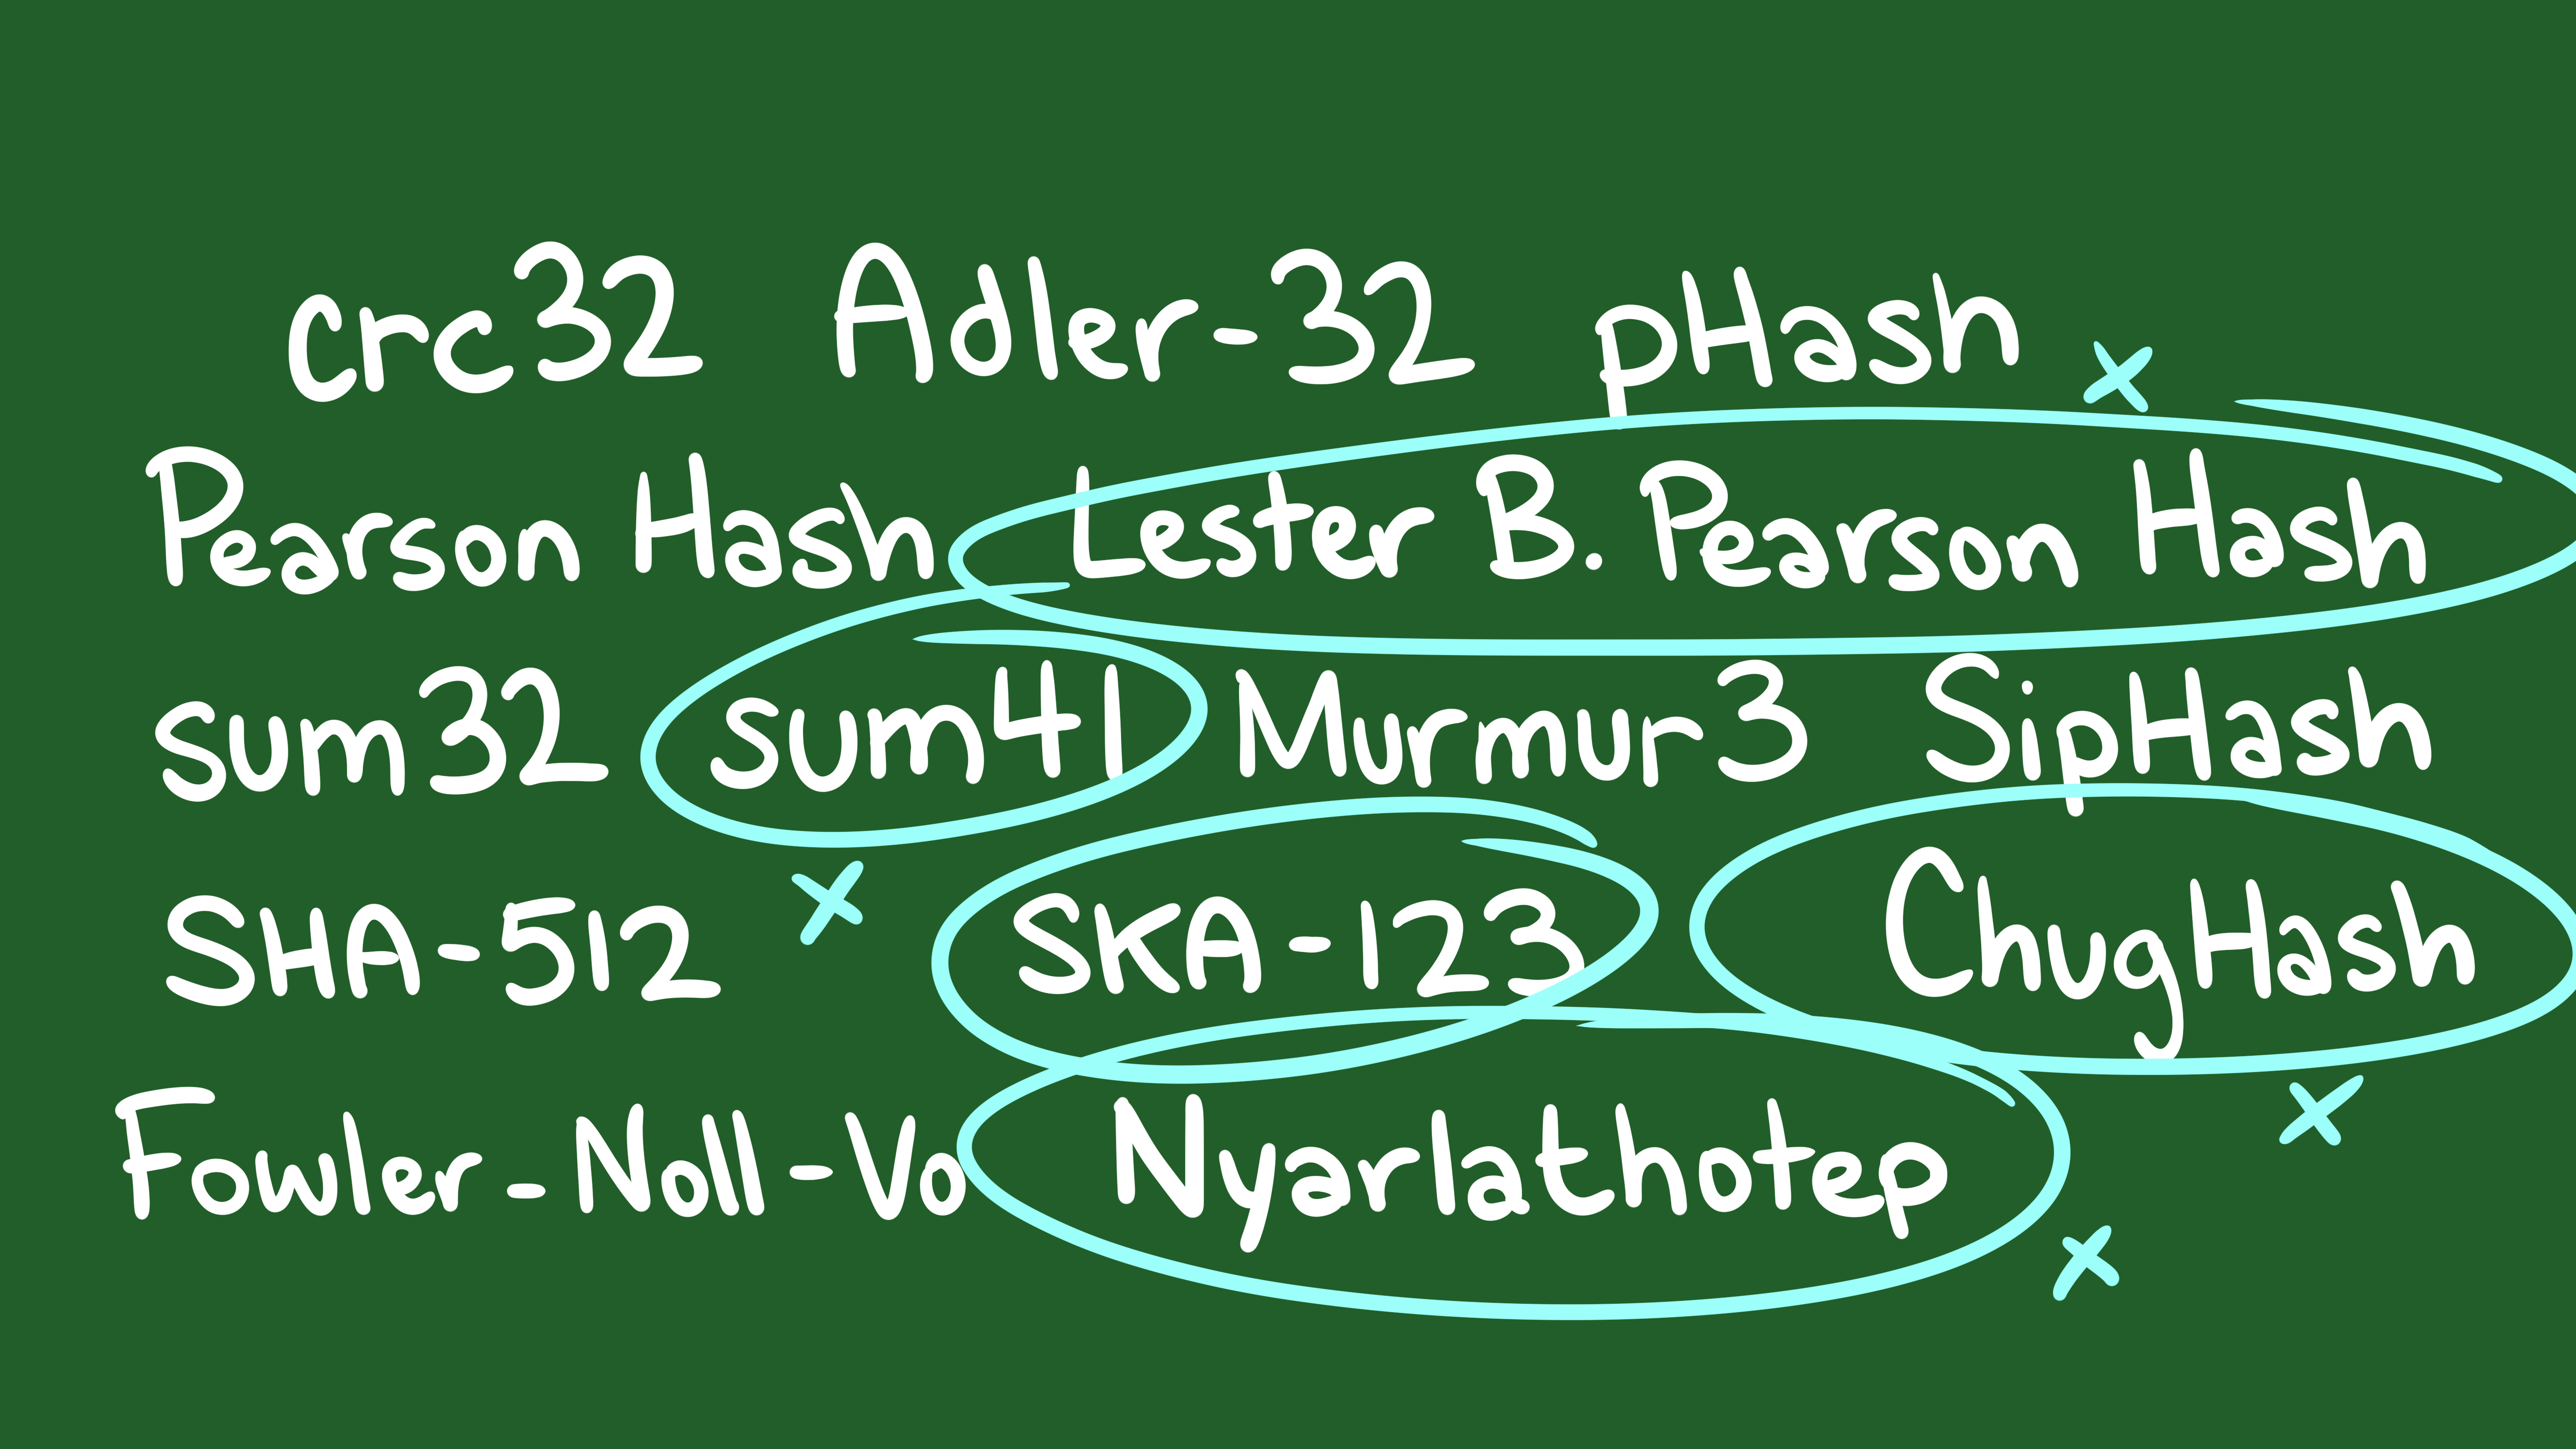 crc32 Adler-32 pHash
Pearson Hash Lester B. Pearson Hash
sum32 sum41 Murmur3 SipHash
SHA-512 SKA-123 ChugHash
Fowler-Noll-Vo Nyarlathotep